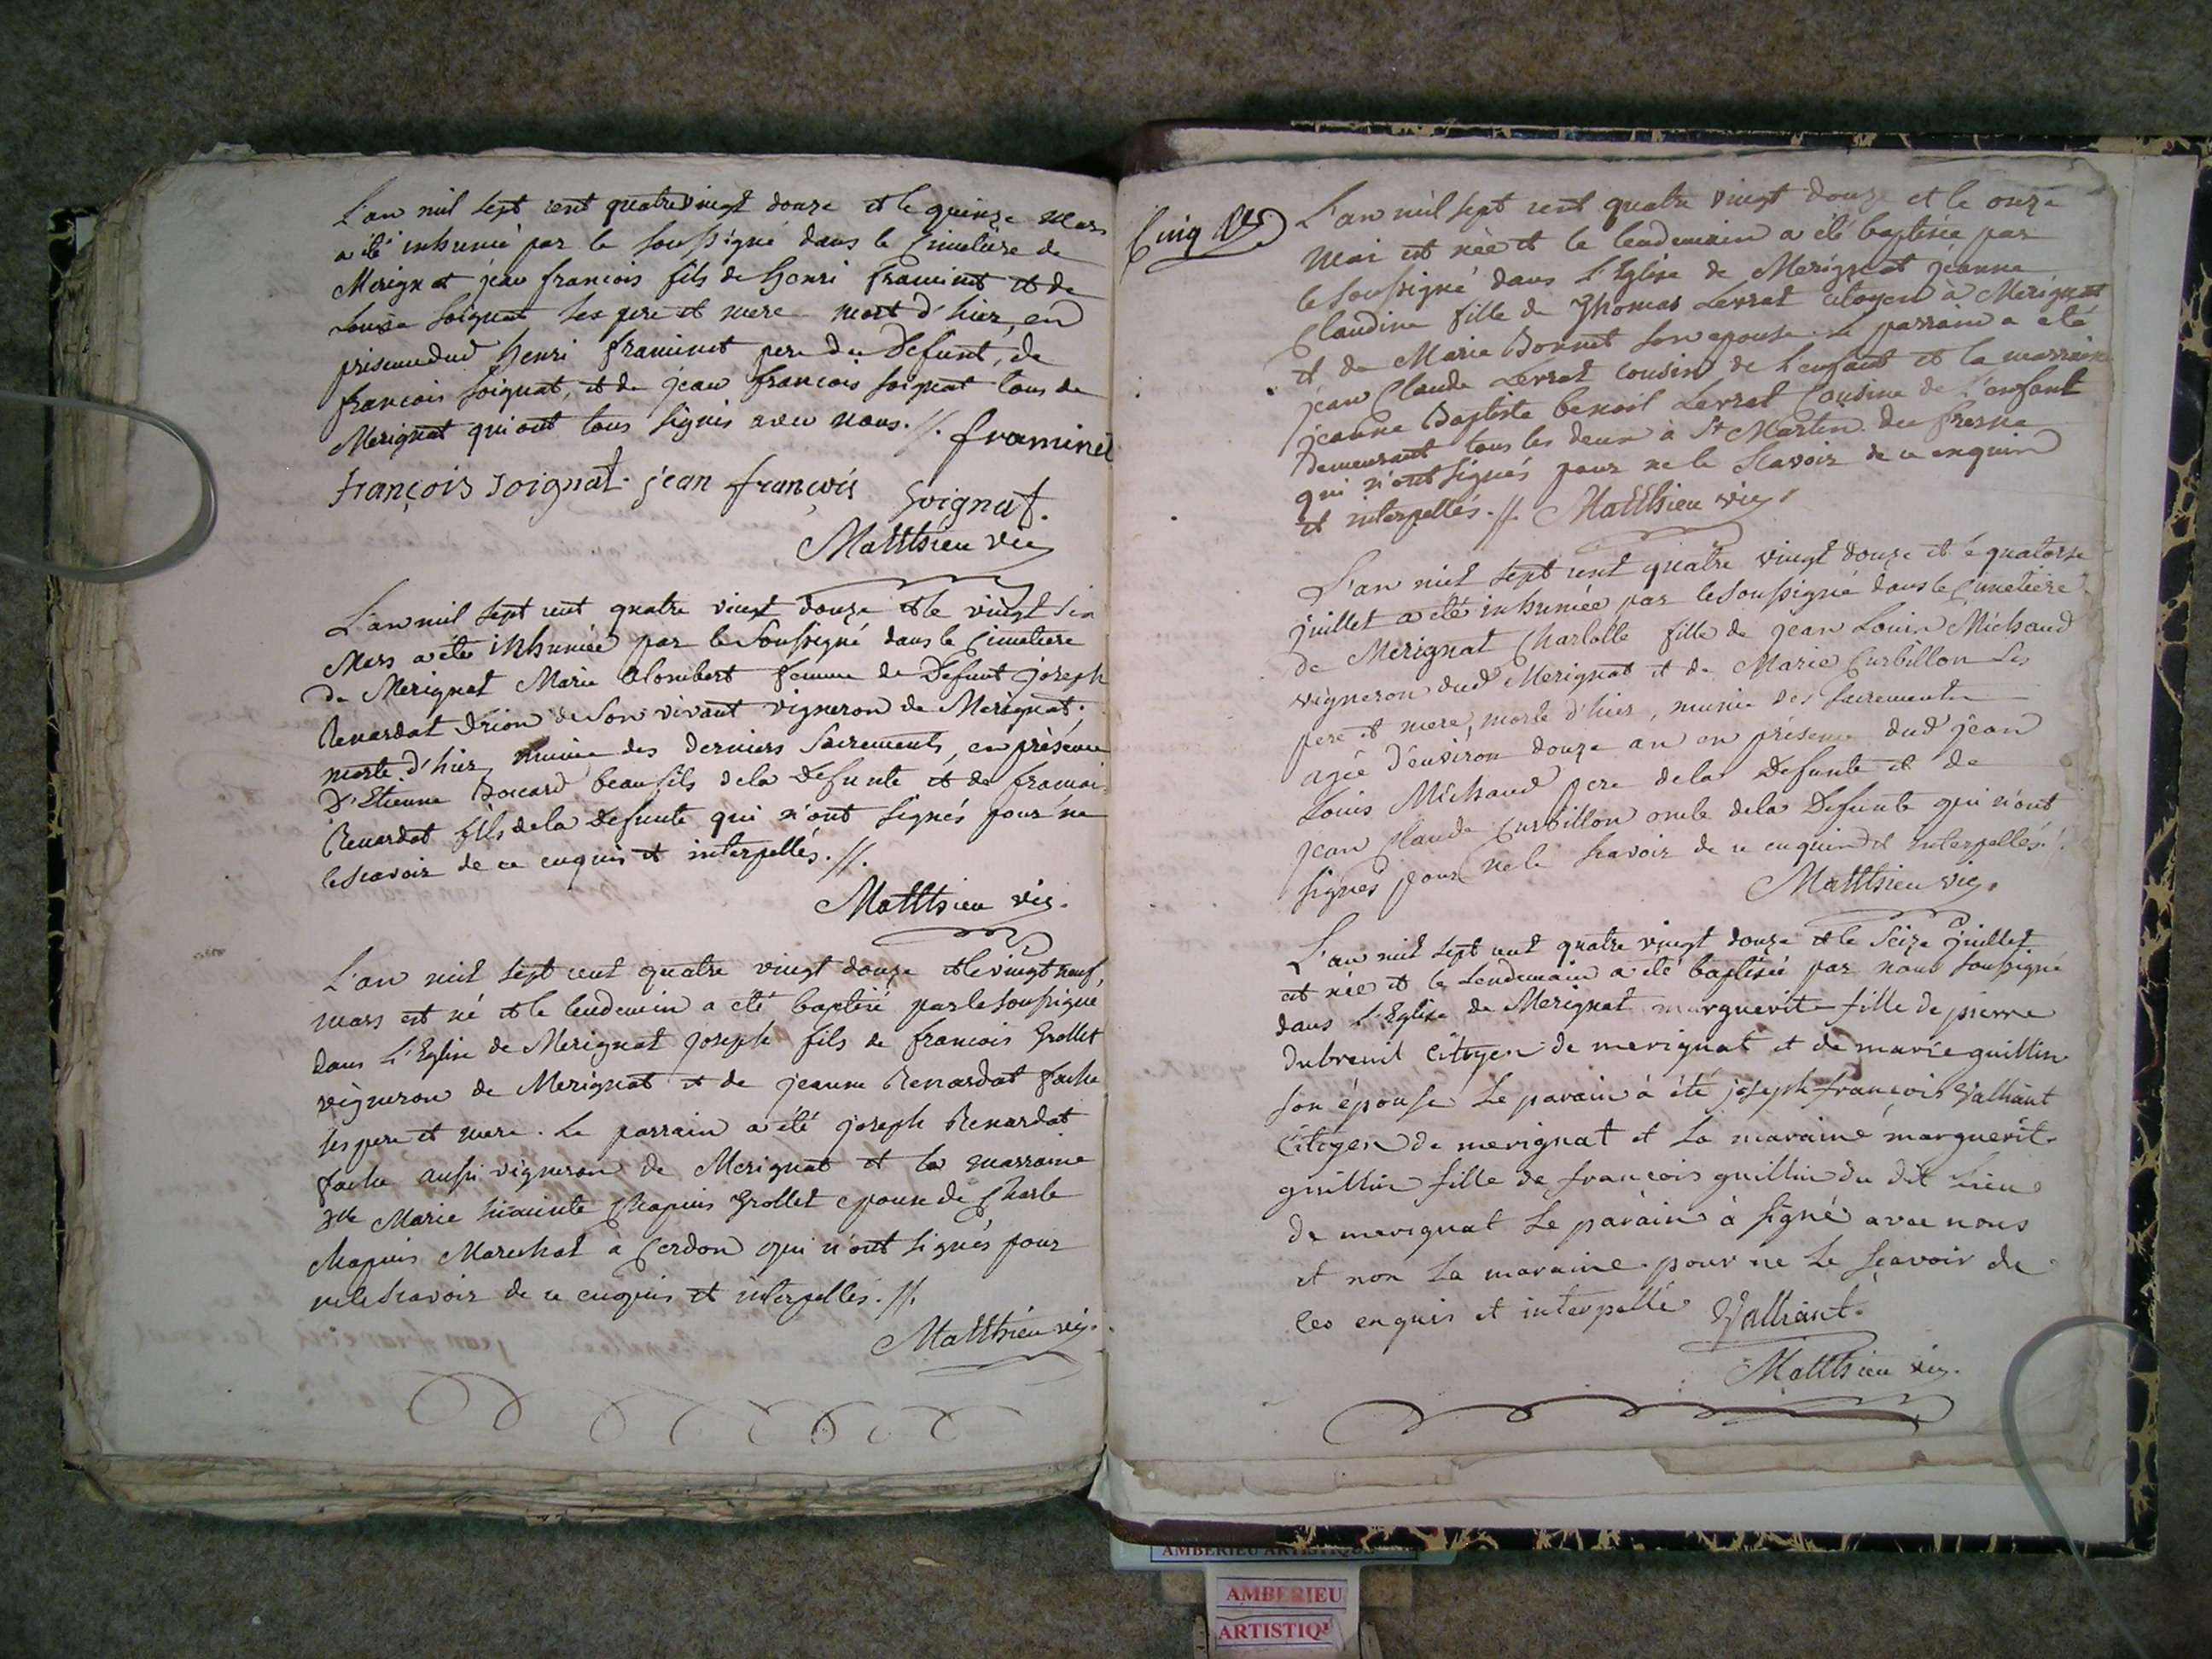 L'an mil sept cent quatre vingt douze et le quinze mars
a été inhumé par le soussigné dans le Cimetiere de
Merignat jean francois fils de henri framinet et de
Louise Soignat ses pere et mere mort d'hier, en
presence dud henri framinet pere du Defunt, de
francois Soignat, et de jean francois soignat tous de
Merignat qui ont tous signés avec nous. //. framinet
françois soignat. jean françois Soignat.
Matthieu vic
L'an mil sept cent quatre vingt douze et le vingt six
Mars a été inhumée par le Soussigné dans le Cimetiere
de Merignat Marie Alombert femme de Defunt joseph
Renardat Drion de Son vivant vigneron de Merignat.
morte d'hier, munie des derniers Sacrements, en présence
D'Etienne Bocard beaufils de la Defunte et de francois
Renardat fils de la Defunte qui n'ont signés pour ne
le scavoir de ce enquis et interpellés. //.
Matthieu vic.
L'an mil sept cent quatre vingt douze et le vingt neuf
mars est né et le lendemain a été baptisé par le soussigné
dans L'Eglise de Merignat joseph fils de francois Grollet
vigneron de Merignat et de jeanne Renardat fache
ses pere et mere. Le parrain a été joseph Renardat
fache aussi vigneron de Merignat et la marraine
Marie hiacinte Chapuis Grollet epouse de Charle
Chapuis Marechal à Cerdon qui n'ont signés pour
ne le scavoir de ce enquis et interpellés. //.
Matthieu vic.
Cinq
L'an mil sept cent quatre vingt douze et le onze
Mai est née et le lendemain a été baptisée par
le soussigné dans L'Eglise de Merignat jeanne
Claudine fille de Thomas Levrat citoyen à Merignat
et de Marie Bonnet son epouse. Le parrain a été
jean Claude Levrat cousin de l'enfant et la marraine
jeanne Baptiste benoit Levrat Cousine de l'enfant
Demeurant tous les deux à St Martin du fresne
qui n'ont signés pour ne le Scavoir de ce enquis
et interpellés. //. Matthieu vic.
L'an mil sept cent quatre vingt douze et le quatorse
juillet a été inhumée par le soussigné dans le Cimetiere
de Merignat Charlotte fille de jean Louis Michaud
vigneron dud Merignat et de Marie Curbillon ses
pere et mere, morte d'hier, munie des sacrements
agée d'environ douze an en présence dud jean
Louis Michaud pere de la Defunte et de
jean Claude Curbillon oncle de la Defunte qui n'ont
signés pour ne le scavoir de ce enquis et interpellés. /.
Matthieu vic.
L'an mil sept cent quatre vingt douze et le Seize juillet
est née et le Lendemain a été baptisée par nous soussigné
dans L'Eglise de Merignat marguerite fille de pierre
Dubreuil Citoyen de merignat et de marie guillin
son épouse Le parain à été joseph françois Valliant
Citoyen de merignat et La maraine marguerite
guillin fille de françois guillin du dit Lieu
de merignat Le parain à signé avec nous
et non La maraine pour ne Le Sçavoir de
ceo enquis et interpellé Valliant.
Matthieu vic.
AMBERIEU ARTISTIQUE
AMBERIEU
ARTISTIQ